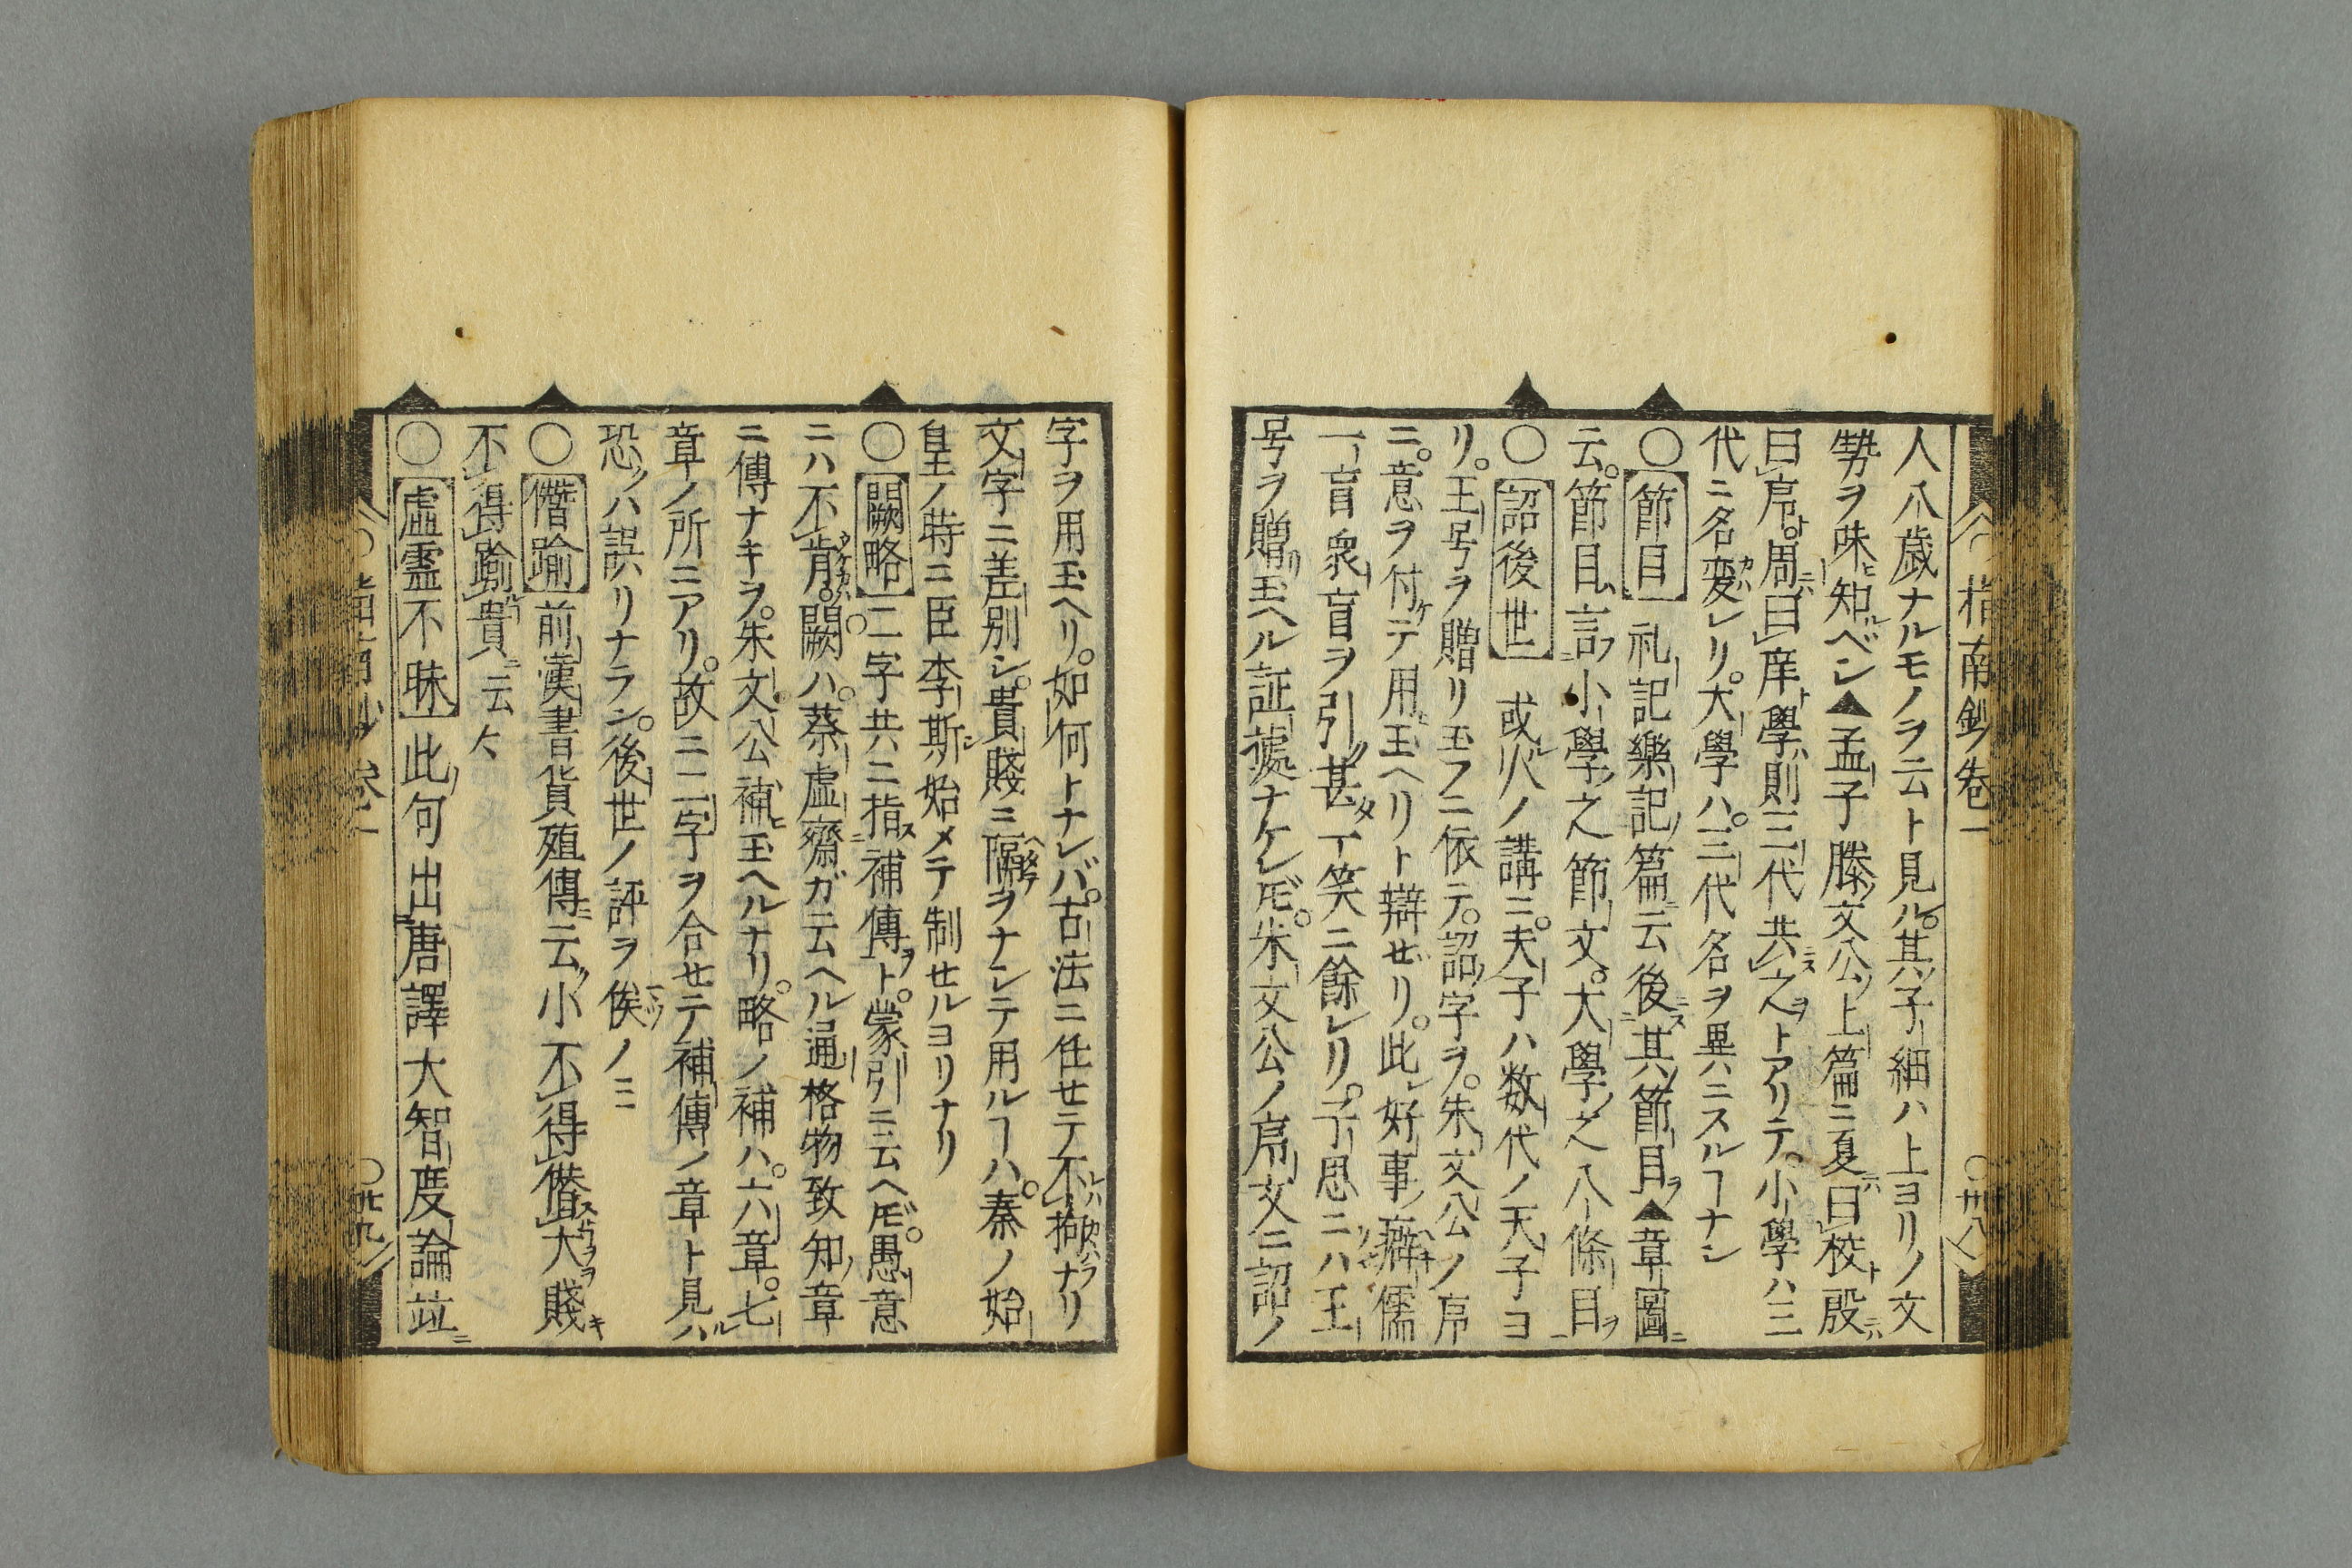 指南鈔卷一
〇卅八
人八歳ナルモノヲ云ト見ル。其子細ハ上ヨリノ文
勢ヲ味知ベシ▲孟子滕文公上篇ニ夏曰校殷
曰序。周曰庠學則三代共之トアリテ。小學ハ三
代ニ名変レリ。大學ハ。三代名ヲ異ニスルヿナシ
〇節目 礼記樂記篇云後其節目▲章圖
云。節目言小學之節文。大學之八條目
〇詔後世 或人ノ講ニ。夫子ハ数代ノ天子ヨ
リ。王号ヲ贈リ玉フニ依テ。詔字ヲ。朱文公ノ序
ニ。意ヲ付テ用玉ヘリト辯ゼリ。此好事癖儒
一盲衆盲ヲ引甚丁笑ニ餘レリ。子思ニハ王
号ヲ贈玉ヘル証據ナケレ𪜈。朱文公ノ序文ニ詔ノ
字ヲ用玉ヘリ。如何トナレバ。古法ニ任セテ不拗ナリ
文字ニ差別シ。貴賤ニ隔ヲナシテ用ルヿハ。秦ノ始
皇ノ時ニ臣李斯始メテ制セルヨリナリ
〇闕略 二字共ニ指補傳ト。蒙引ニ云ヘ𪜈。愚意
ニハ不肯。闕ハ。蔡虚齋ガ云ヘル通格物致知章
ニ傳ナキヲ。朱文公補玉ヘルナリ。略ノ補ハ。六章。七
章ノ所ニアリ。故ニ二字ヲ合セテ補傳ノ章ト見ハ
恐ハ誤リナラン。後世ノ評ヲ俟ノミ
〇僭踰 前漢書貨殖傳云小不得僭大賤
不得踰貴云々
〇虚靈不昧 此句出唐譯大智度論竝
〇卅九